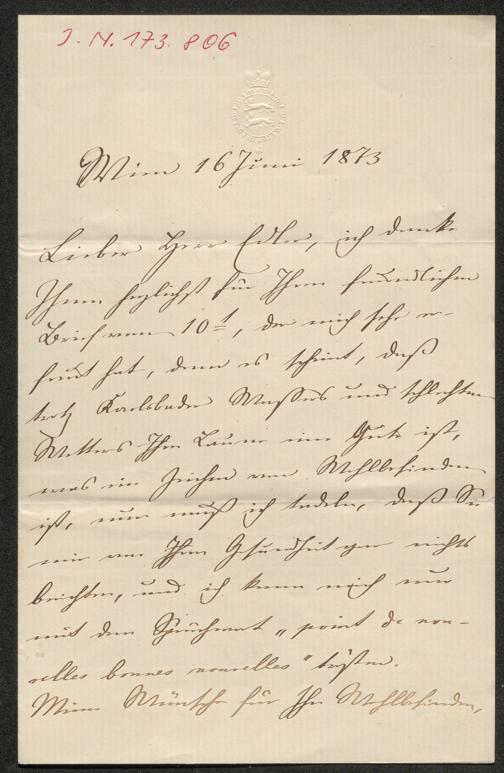 J. N. 173.806
Wien 16 Juni 1873
Lieber Herr Edler, ich danke
Ihnen herzlichst für Ihren freundlichen
Brief vom 10t, der mich sehr er-
freut hat, denn es scheint, daß
trotz Karlsbader Wassers und schlechten
Wetters Ihre Laune eine Gute ist,
was ein Zeichen von Wohlbefinden
ist, nur muß ich tadeln, daß Sie
mir von Ihrer Gesundheit gar nichts
berichten, und ich kann mich nur
mit dem Sprichwort „point de nou-
velles bonnes nouvelles" trösten.
Meine Wünsche für Ihr Wohlbefinden,